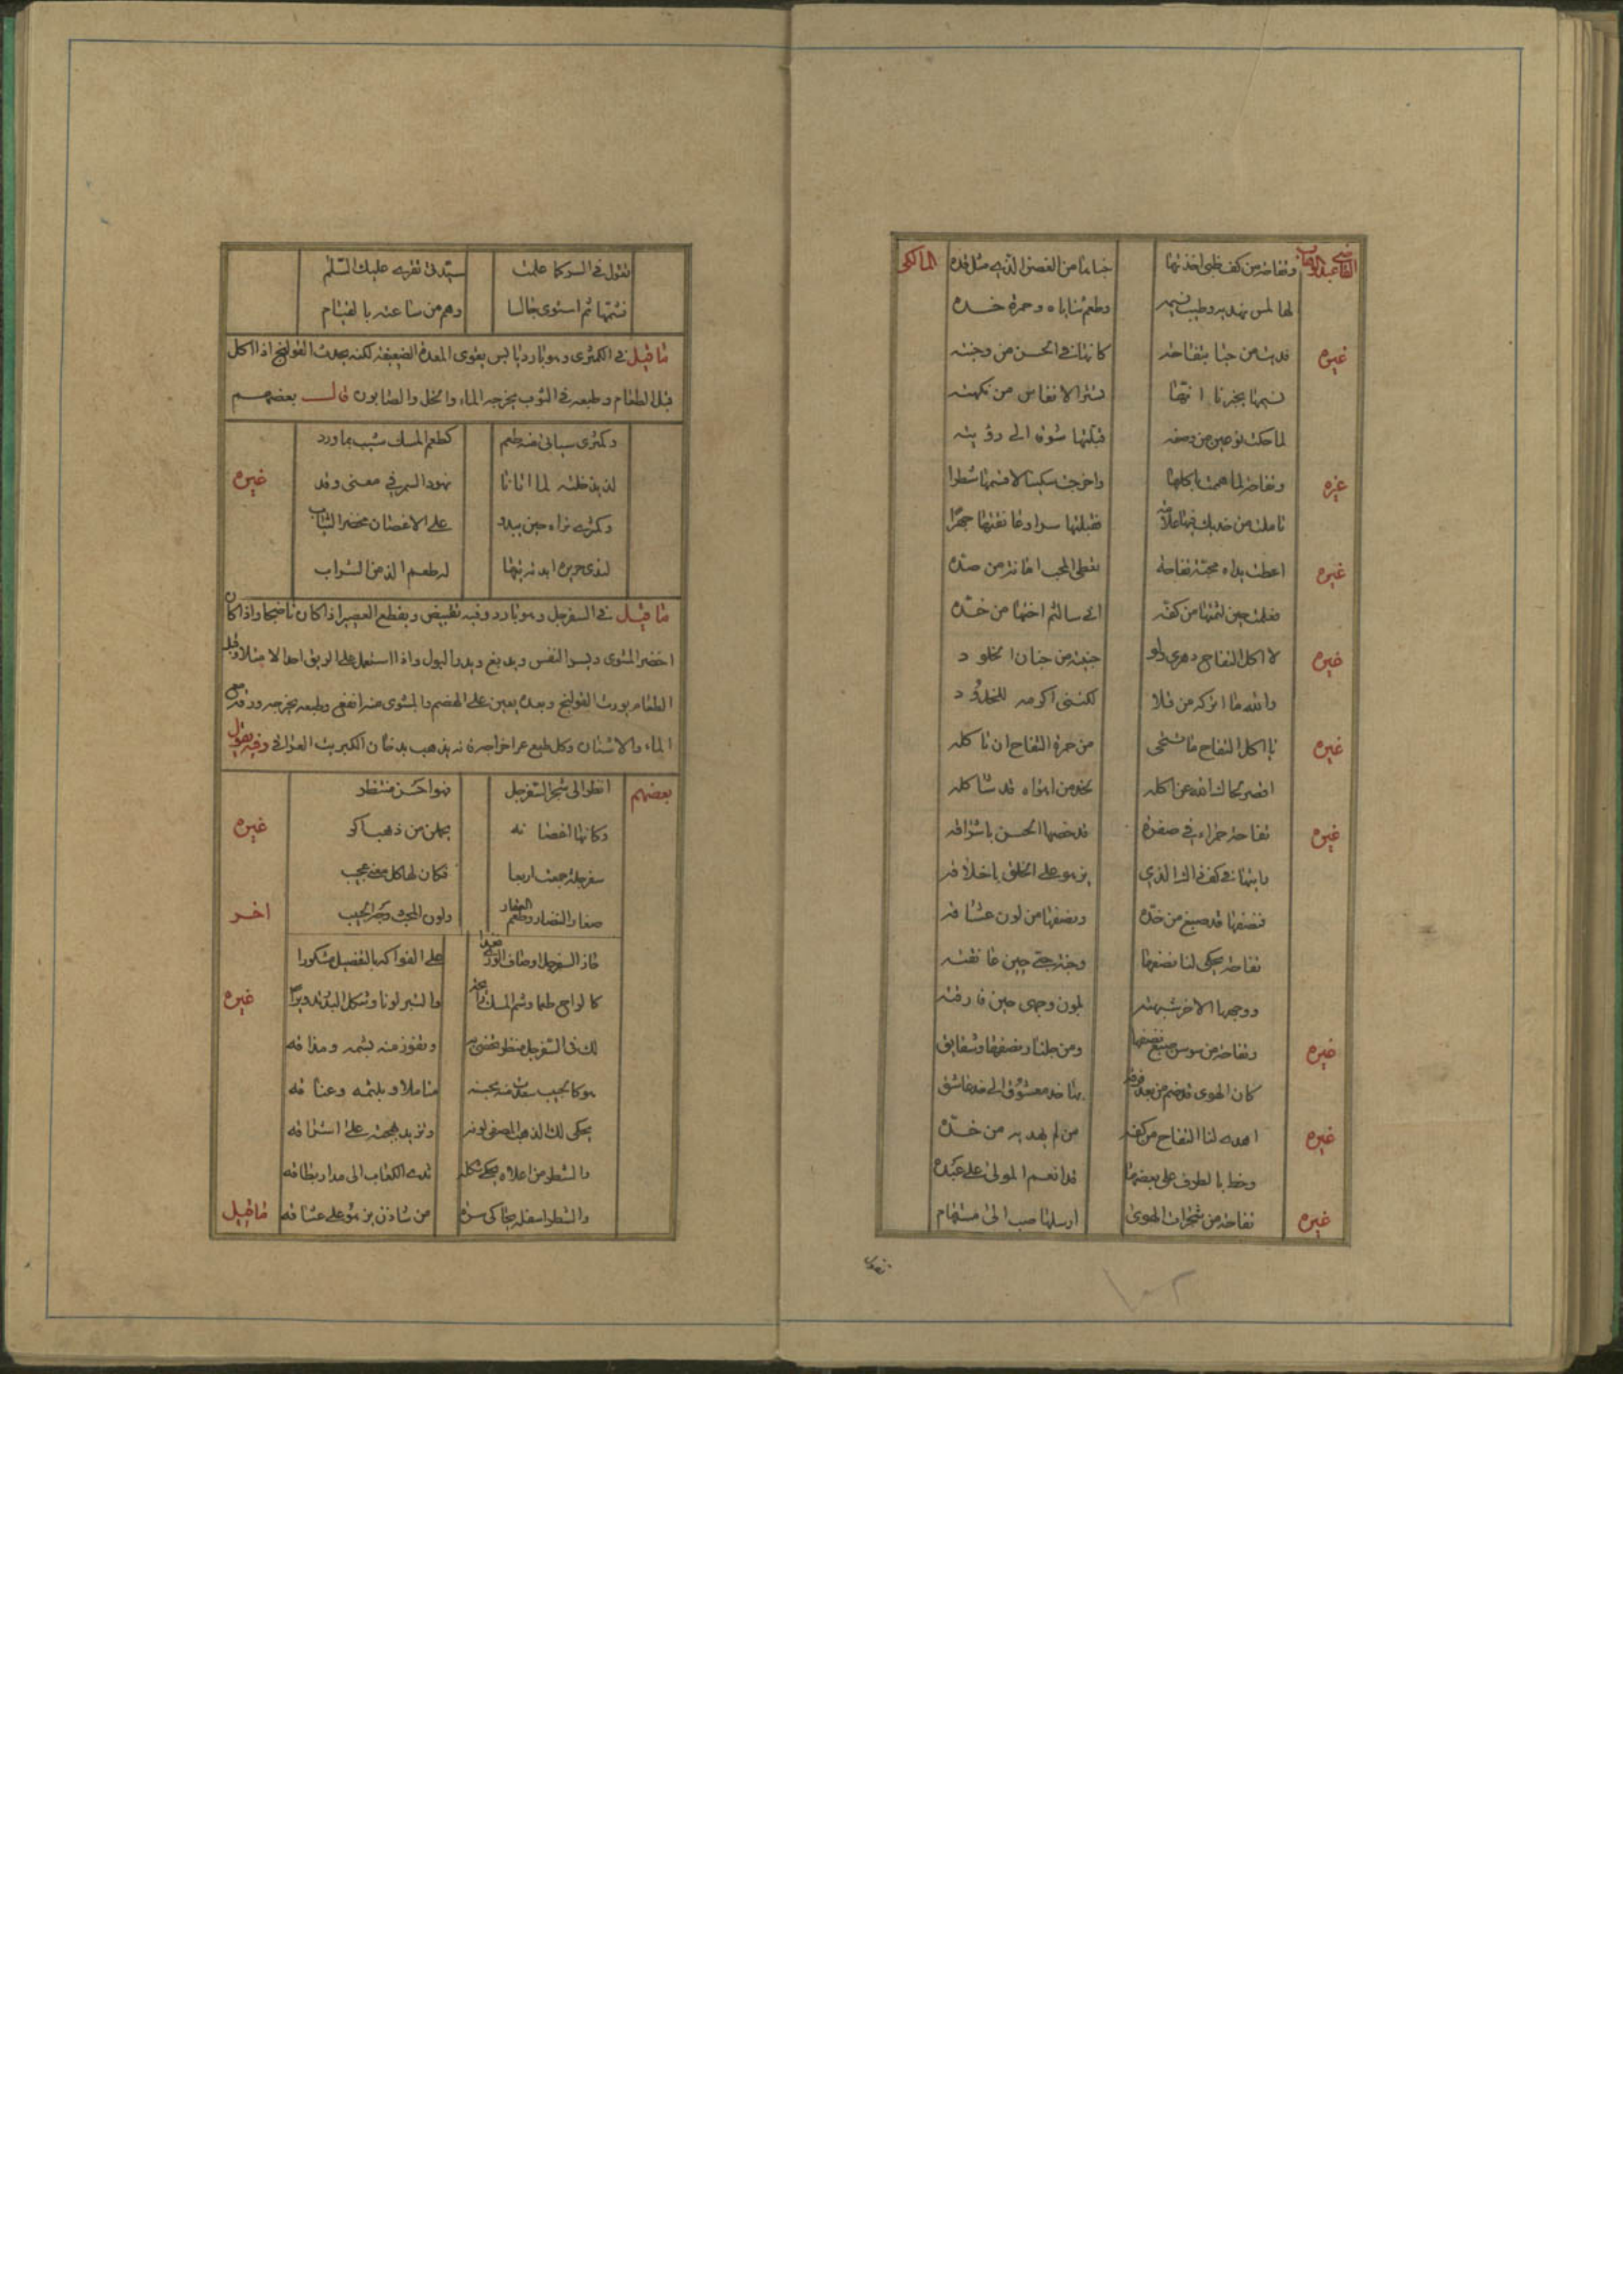 القاضي عبد الوهاب وتفاحة من كف ظبي اخذتها جناها من الغصن الذي مثل قده المالكي
لها لمس نهديه وطيب نسيمه وطعم ثناياه وحمرة خده
غيره فديت من حيا بتفاحة كانها في الحسن من وجنته
نسيمها يخبرنا انها تسترق الانفاس من نكهته
لما حكت نوعين من وصفه قبلتها شوقا الى رؤيته
غيره وتفاحة لما هممت باكلها واخرجت سكينا لاقسمها شطرا
تاملت من خديك فيها علامة فقبلتها سرا وعانقتها جهرا
غيره اعطت يداه محبه تفاحة تعطي المحب امانة من صده
فعلمت حين لثمتها من كفه اني سالثم اختها من خده
غيره لا اكل التفاح دهري ولو جنيته من جنان الخلود
والله ما اتركه من قلا لكنني اكرمه للخدود
غيره يا اكل التفاح ما تستحي من حمرة التفاح ان تاكله
اقصر لحاك الله عن اكله بخد من اهواه قد شاكله
غيره تفاحة حمراء في صفرة قد خصها الحسن باشراقه
يا بنها في كف ذاك الذي يزهو على الخلق باخلاقه
فنصفها قد صيغ من خده ونصفها من لون عشاقه
تفاحة يحكي لنا نصفها وجنة حبي حين عانقته
ووجهها الاخر شبهته بلون وجهي حين فارقته
غيره وتفاحة من سوسن صيغ نصفها ومن جلنار نصفها وشقايق
كان الهوى قد ضم من بعد فرقة بها خد معشوق الى خد عاشق
غيره اهدى لنا التفاح من كفه من لم يهديه من خده
وخط بالطرف على بعضها قد انعم المولى على عبده
غيره تفاحة من شجرات الهوى ارسلها صب الى مستهام
تقول
تقول في السر كما علمت سيدتي تقريه عليك السلم
فشمها ثم استوى جالسا وهم من ساعته بالقيام
ما قيل في الكمثرى وهو بارد يابس يقوى المعدة الضعيفة لكنه يحدث القولنج اذا اكل
قبل الطعام وطبعه في الثوب يخرجه الماء والخل والصابون قال بعضهم
وكمثرى سباني منه طعم كطعم المسك شيب بماورد
لذيذ خلته لما اتانا نهود السمر في معنى وقد غيره
وكمثرى تراه حين يبدو على الاغصان مخضر الثياب
لثدي ابدته تيها له طعم الذ من الشراب
ما قيل في السفرجل وهو بارد وفيه تقبيض ويقطع العصير اذا كان ناضجا واذا كان
اخضر المشوي ويسر النفس ويدبغ ويدر البول واذا استعمل على الريق احدا لامتلا وقبل
الطعام يورث القولنج وبعده يعين على الهضم والمشوى منه انفع وطبعه يخرجه ورقه مع
الماء والاشنان وكل طبع عز اخراجه فانه يذهب بدخان الكبريت العراقي وفيه يقول
بعضهم انظر الى شجر السفرجل فهو احسن منتظر
وكانها اغصانه يحملن من ذهب اكر غيره
سفرجلة جمعت اربعا فكان لها كل معنى عجيب
صفاء النضار وطعم العقار ولون المحب وريح الحبيب اخر
حاز السفرجل اوصاف الورى فغدا على الفواكه بالتفضيل مشكورا
كالراح طعما وشم المسك رائحة والتبر لونا وشكل البدر تدويرا غيره
لك في السفرجل منظر تحظى به وتفوز منه بشمه ومذاقه
هو كالحبيب سعدت منه بحسنه متاملا وبلثمه وعناقه
يحكي لك الذهب المصفى لونه وتزيد بهجته على اشراقه
والشطر من اعلاه يحكي شكله ثدي الكعاب الى مدار نطاقه
والشطر اسفله يحاكي سرة من شادن يزهو على عشاقه ما قيل